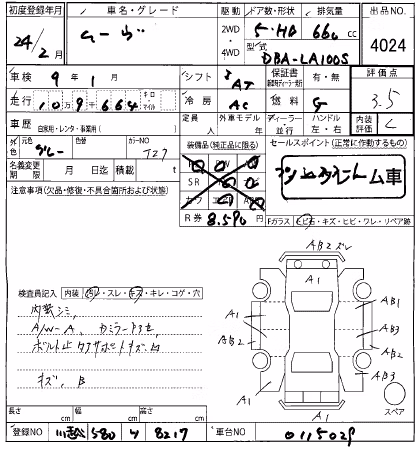 初度登録年月 車名・グレード 駆動 ドア数・形状 排気量 出品NO
24/2月 ムーヴ 2WD 4WD 5・HB 660cc 4024
型式 DBA-LA100S
車検 9年1月 シフト AT 保証書 有・無 評価点
走行 10万9千664 キロ マイル 冷房 AC 燃料 G 3.5
車歴 自家用・レンタ・事業用( ) 定員 人 外車モデル 年 ディーラー 並行 ハンドル 左・右 内装評価 C
外色 元色 グレー 色替 カラーNO T27
装備品(純正品に限る) セールスポイント(正常に作動するもの)
名義変更期限 月 日迄 積載 t
SR
ム車
注意事項(欠品・修復・不具合箇所および状態)
R券 8,590円 Fガラス ヒビ石・キズ・ヒビ・ワレ・リペア跡
AB2 ズレ
A1
検査員記入 内装 ヨレ・スレ・キズ・キレ・コゲ・穴
内装シミ
A/W-A
キズ、B
A1 AB1
AB2 AB3
AB2
AB3
A1
A1 スペア
長さ cm 幅 cm 高さ cm
登録NO 580 8217 車台NO 0115029